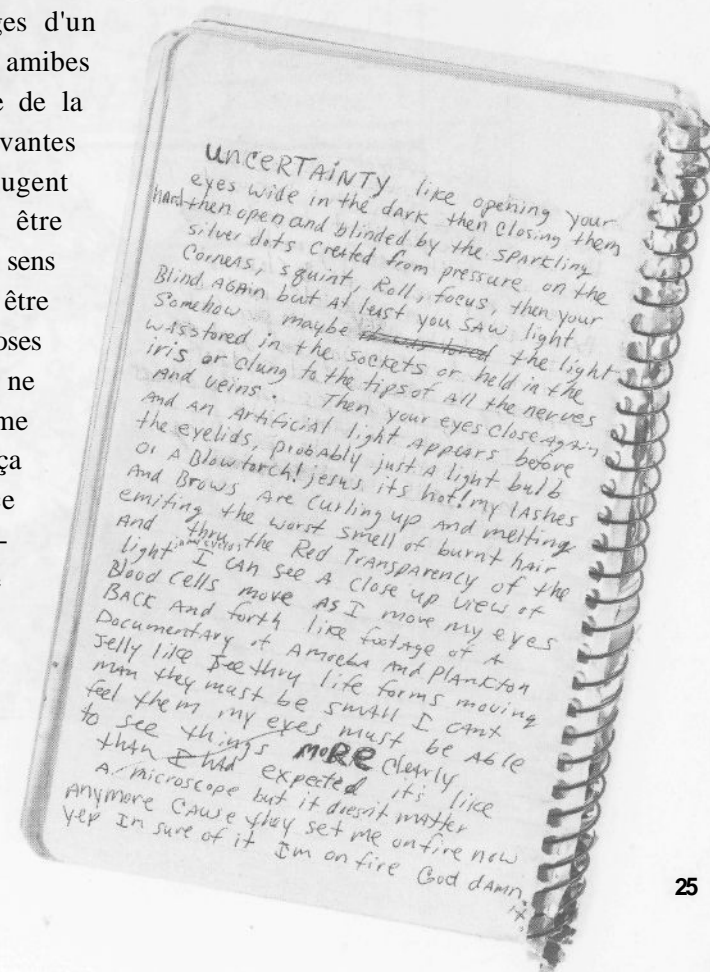 ges d'un
amibes
e de la
vantes
ugent
être
sens
être
oses
ne
me
ça
e
-
UNCERTAINTY like opening your
eyes wide in the dark then closing them
hard then open and blinded by the sparkling
silver dots created from pressure on the
Corneas, squint, Roll, focus, then your
Blind AGAIN but at least you SAW light
Somehow maybe it was stored the light
was stored in the sockets or held in the
iris or clung to the tips of all the nerves
And veins. Then your eyes close Again
And an Artificial light Appears before
the eyelids, probably just A light bulb
Or A Blowtorch! jesus its hot! my lashes
And Brows Are Curling up And melting
emiting the worst smell of burnt hair
And thru the Red Transparency of the
light I CAN see A close up view of
Blood Cells move As I move my eyes
BACK And forth like footage of A
Documentary of Amoeba And Plankton
Jelly like See thru life forms moving
man they must be small I cant
feel them my eyes must be Able
to see things MORE Clearly
than I had expected it's like
A microscope but it doesnt matter
Anymore CAUSe they set me on fire now
yep Im sure of it Im on fire God dAmn
it.
25